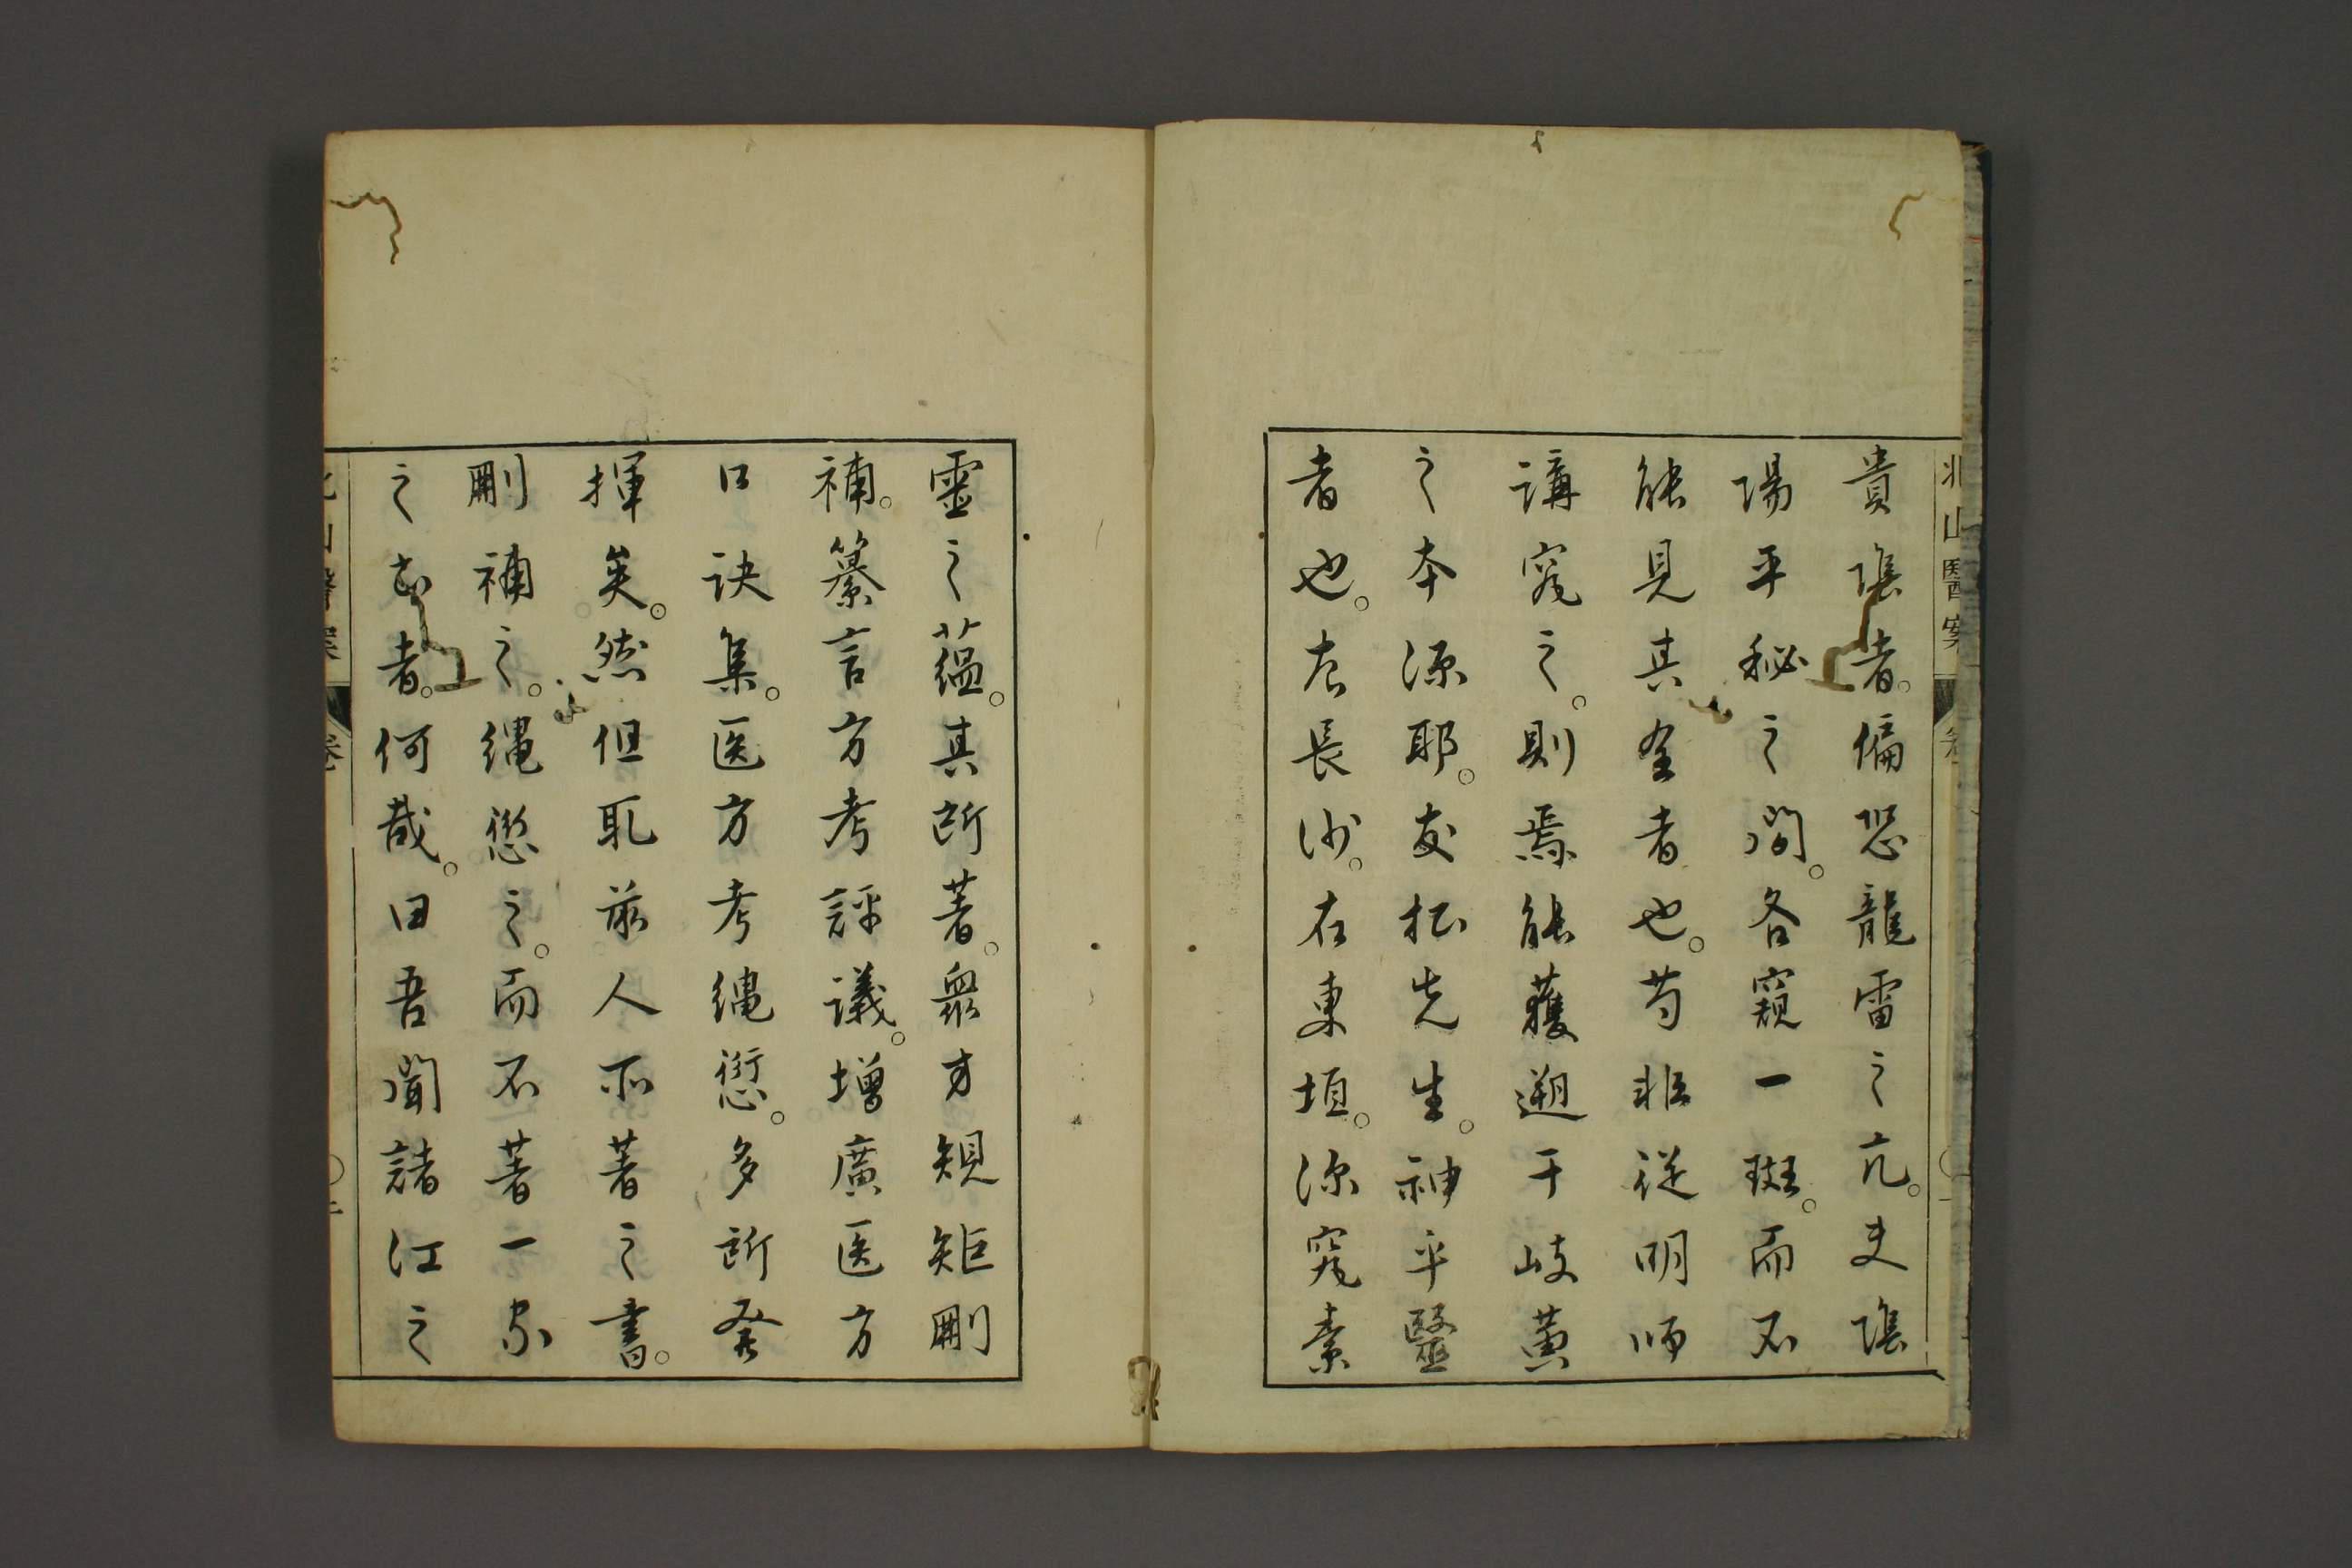 北山醫案
貴陰者。偏恐龍雷之亢。夫陰
陽平秘之間。各窺一斑。而不
能見其全者也。苟非從明師
講究之。則焉能獲遡于岐黄
之本源耶。友松先生。神乎醫
者也。左長沙。右東垣。深究素
靈之蘊。其所著。衆方規矩刪
補。纂言方考評議。增廣医方
口訣集。医方考繩愆。多所發
揮矣。然但耻前人所著之書。
刪補之。繩愆之。而不著一家
之言者。何哉。曰吾聞諸江之